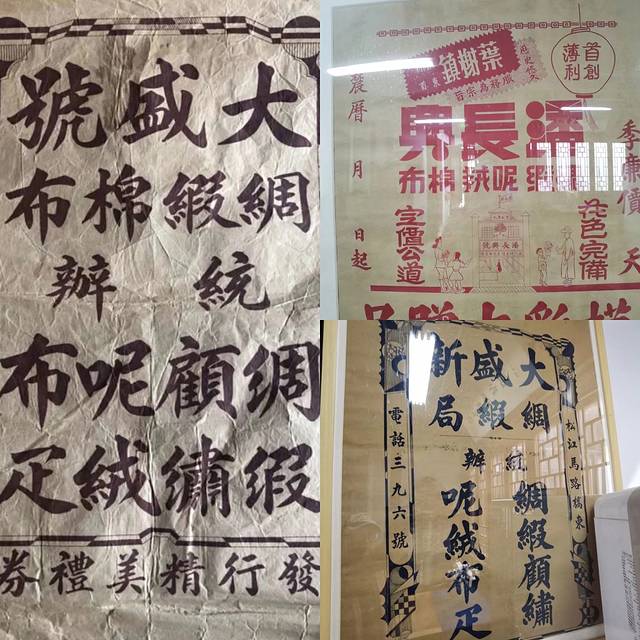 大盛號
綢緞棉布
統辦
綢緞顧繡呢絨布疋
發行精美禮券
首創
薄利
歷史悠久
葉榭鎮
潘長興
綢緞呢絨棉布
季廉價 天
農曆 月 日起
花色完備
定價公道
潘長興號
大盛新
綢緞局
統辦
綢緞顧繡
呢絨布疋
松江馬路橋東
電話三九六號